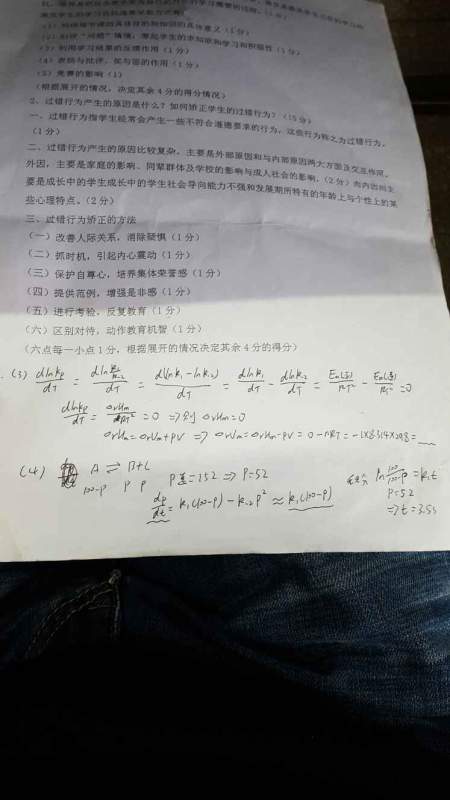 (1)
(2)创设"问题"情境，激起学生的求知欲和学习积极性（1分）
(3)利用学习结果的反馈作用（1分）
(4)表扬与批评，奖与惩的作用（1分）
(5)竞赛的影响（1）
（根据展开的情况，决定其余4分的得分情况）
2、过错行为产生的原因是什么？如何矫正学生的过错行为？（15分）
一、过错行为指学生经常会产生一些不符合道德要求的行为，这些行为称之为过错行为。
（1分）
二、过错行为产生的原因比较复杂，主要是外部原因和与内部原因两大方面及交互作用。
外因，主要是家庭的影响、同辈群体及学校的影响与成人社会的影响。（2分）而内因则主
要是成长中的学生成长中的学生社会导向能力不强和发展期所特有的年龄上与个性上的某
些心理特点。（2分）
三、过错行为矫正的方法
（一）改善人际关系，消除疑惧（1分）
（二）抓时机，引起内心震动（1分）
（三）保护自尊心，培养集体荣誉感（1分）
（四）提供范例，增强是非感（1分）
（五）进行考验，反复教育（1分）
（六）区别对待，动作教育机智（1分）
（六点每一小点1分，根据展开的情况决定其余4分的得分）
(3) dlnkp/dT = dln(k₁/k₋₂)/dT = d(lnk₁-lnk₋₂)/dT = dlnk₁/dT - dlnk₋₂/dT = Ea(正)/RT² - Ea(逆)/RT² = 0
dlnkp/dT = ΔrHm/RT² = 0 ⇒ 则 ΔrHm = 0
ΔrHm = ΔrUm + PV ⇒ ΔrUm = ΔrHm - PV = 0 - nRT = -1×8.314×298 =
(4) A ⇌ B+C P总=152 ⇒ P=52 ln 100/(100-P) = k₁t
100-P P P P=52
dp/dt = k₁(100-P) - k₋₂P² ≈ k₁(100-P) ⇒ t=3.5s